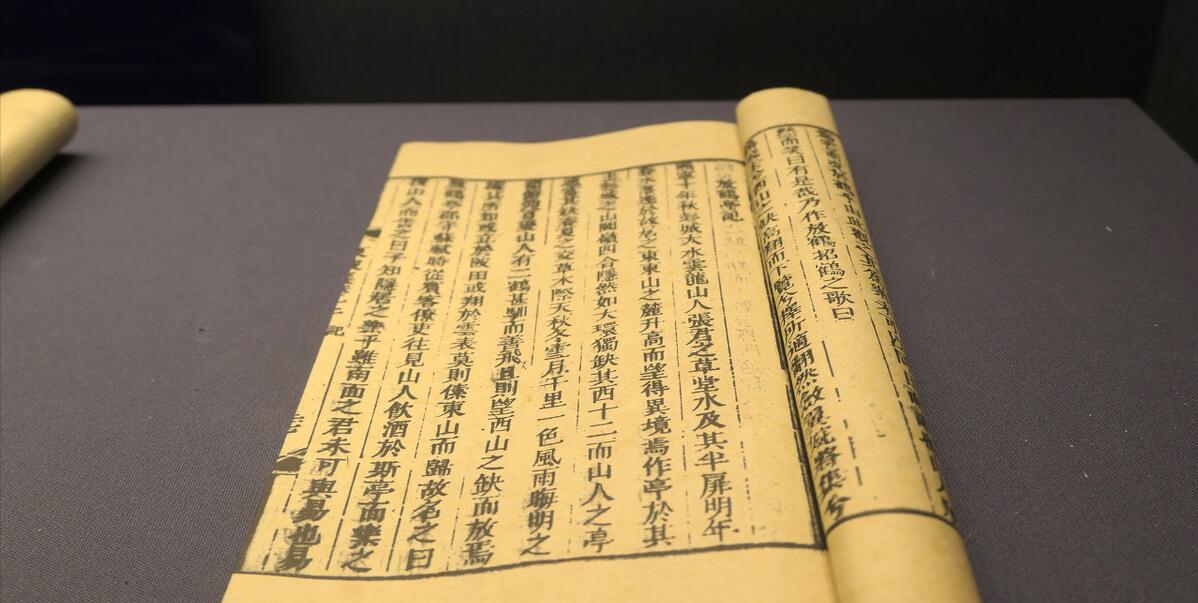 然而笑曰有是哉乃作放鶴招鶴之歌曰
西山之缺高翔而下覽兮擇所適翻然斂翼宛將集兮
放鶴亭記
十年秋彭城大水雲龍山人張君之草堂水及其半屏明年
春水落遷於故居之東東山之麓升高而望得異境焉作亭於其
上彭城之山岡嶺四合隱然如大環獨缺其西十二而山人之亭
其缺春夏之交草木際天秋冬雪月千里一色風雨晦明之
山人有二鶴甚馴而善飛旦則望西山之缺而放焉
其所如或立於陂田或翔於雲表莫則傃東山而歸故名之曰
放鶴亭郡守蘇軾時從賓客僚吏往見山人飲酒於斯亭而樂之
山人而告之曰子知隱居之樂乎雖南面之君未可與易也易